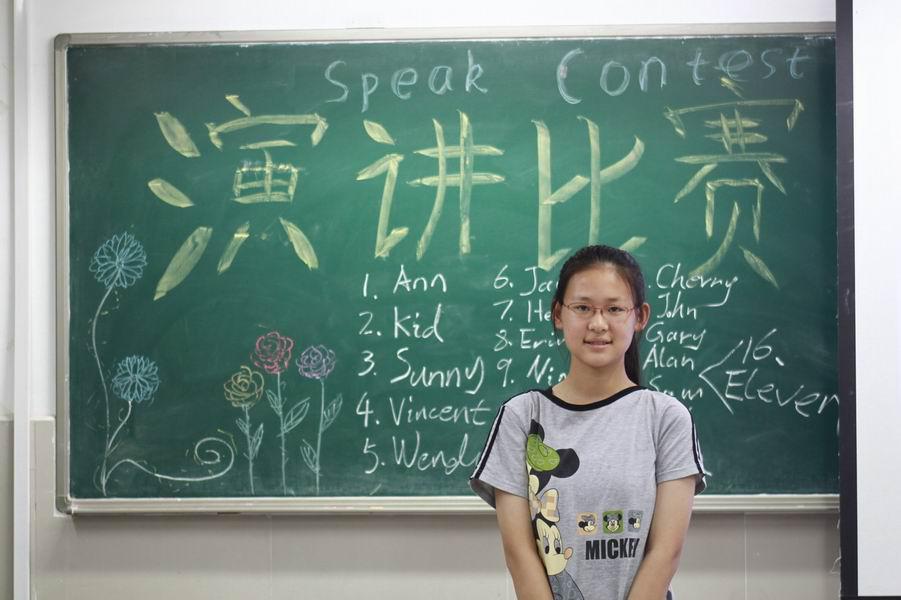 Speak Contest
演讲比赛
1. Ann
2. Kid
3. Sunny
4. Vincent
5.
6.
7.
8.
9.
Cherry
John
Gary
Alan
16.
Eleven
MICKEY